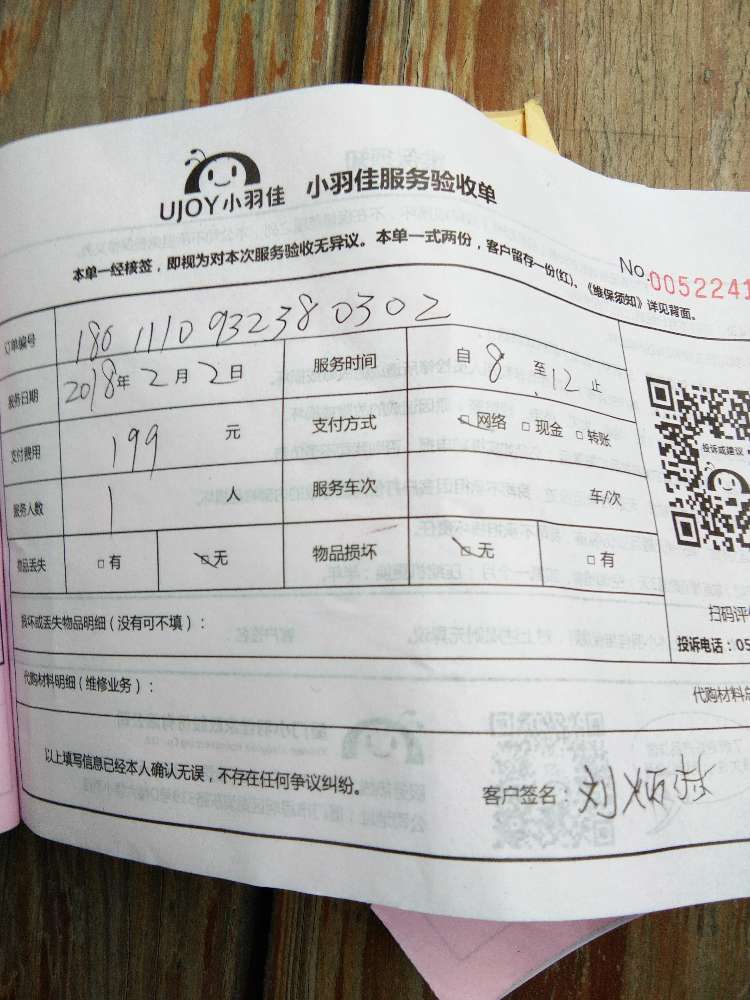 UJOY小羽佳 小羽佳服务验收单
No.0052241
本单一经核签，即视为对本次服务验收无异议。本单一式两份，客户留存一份(红)。《维保须知》详见背面。
订单编号 1801110932380302
服务日期 2018年2月2日 服务时间 自8至12止
支付费用 199元 支付方式 网络 现金 转账
服务人数 1人 服务车次 车/次
投诉或建议
物品丢失 有 无 物品损坏 无 有
损坏或丢失物品明细（没有可不填）：
扫码评
投诉电话：05
代购材料明细（维修业务）： 代购材料总
以上填写信息已经本人确认无误，不存在任何争议纠纷。 客户签名：刘炳